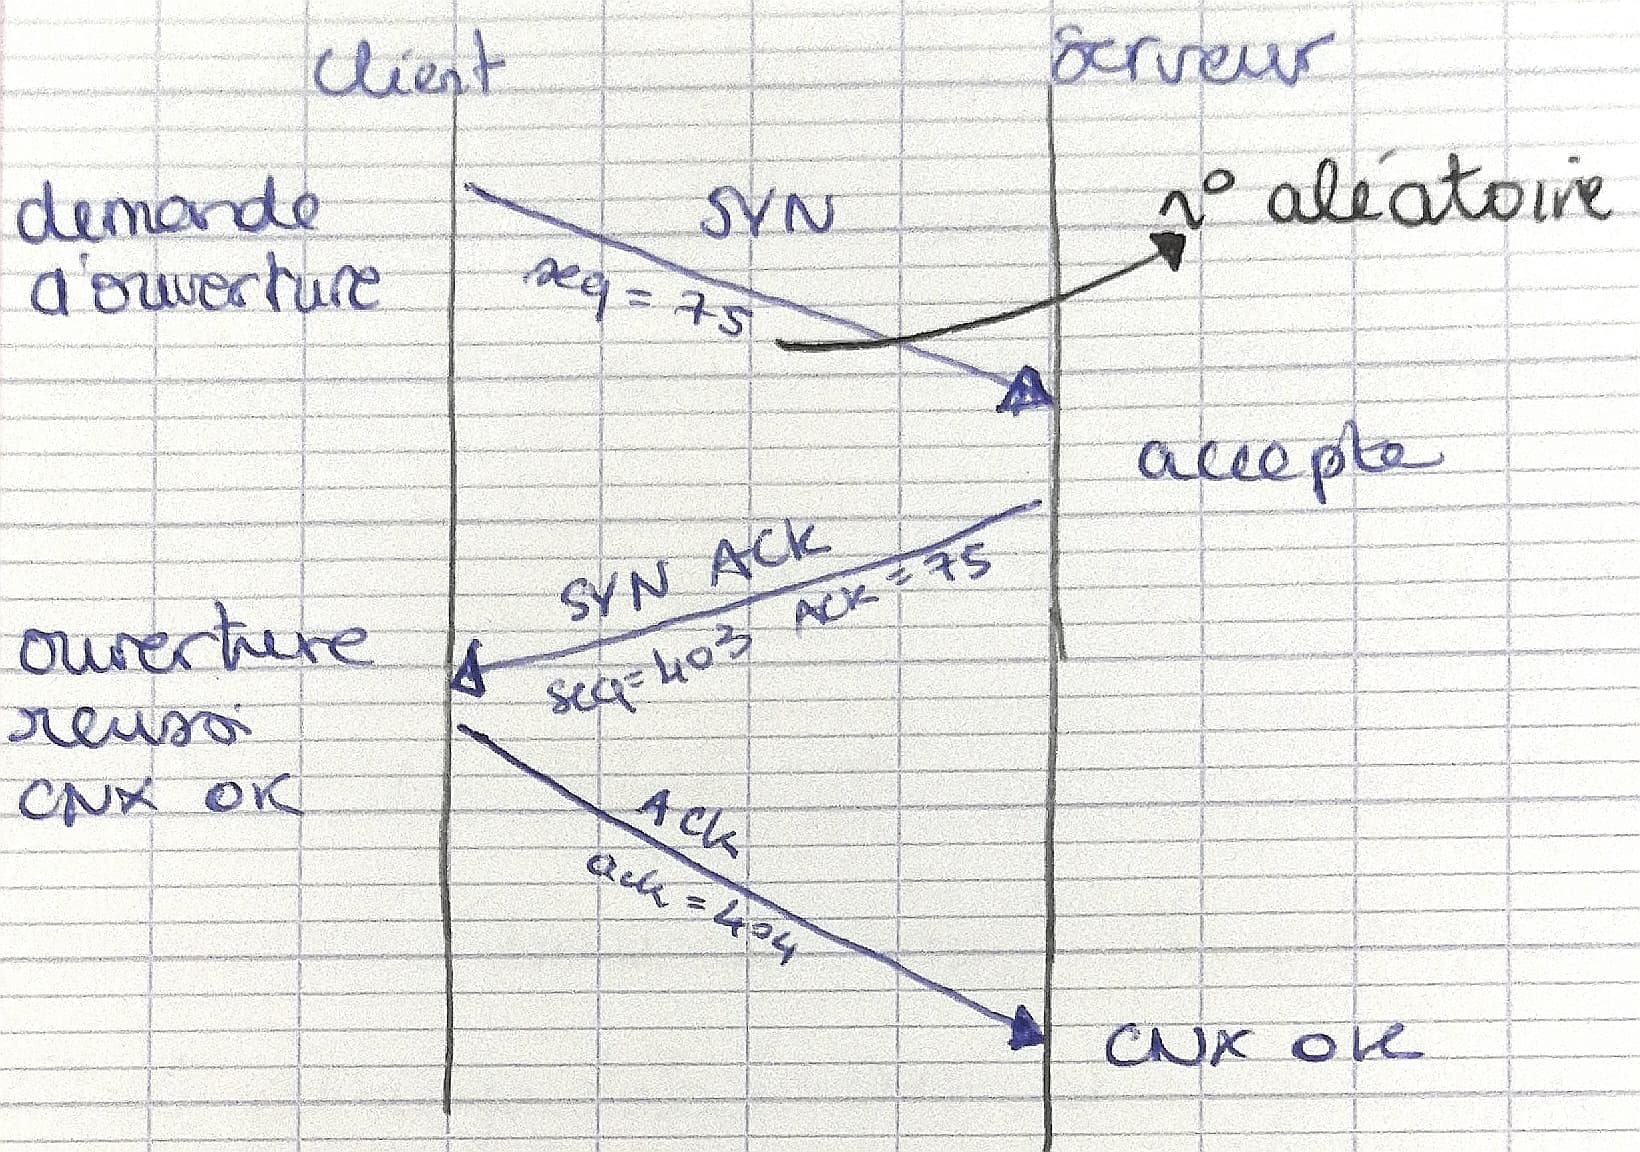 client
serveur
demande
d'ouverture
SYN
seq = 75
n° aléatoire
accepte
SYN ACK
seq=403 ACK = 75
ouverture
reussi
CNX OK
ACK
ack = 404
CNX OK